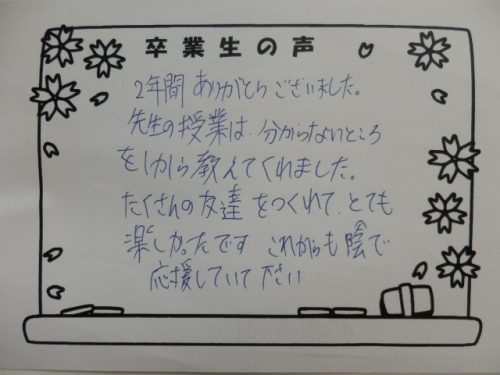 卒業生の声
2年間ありがとうございました。
先生の授業は、分からないところ
を1から教えてくれました。
たくさんの友達をつくれて、とても
楽しかったです これからも陰で
応援していて下さい